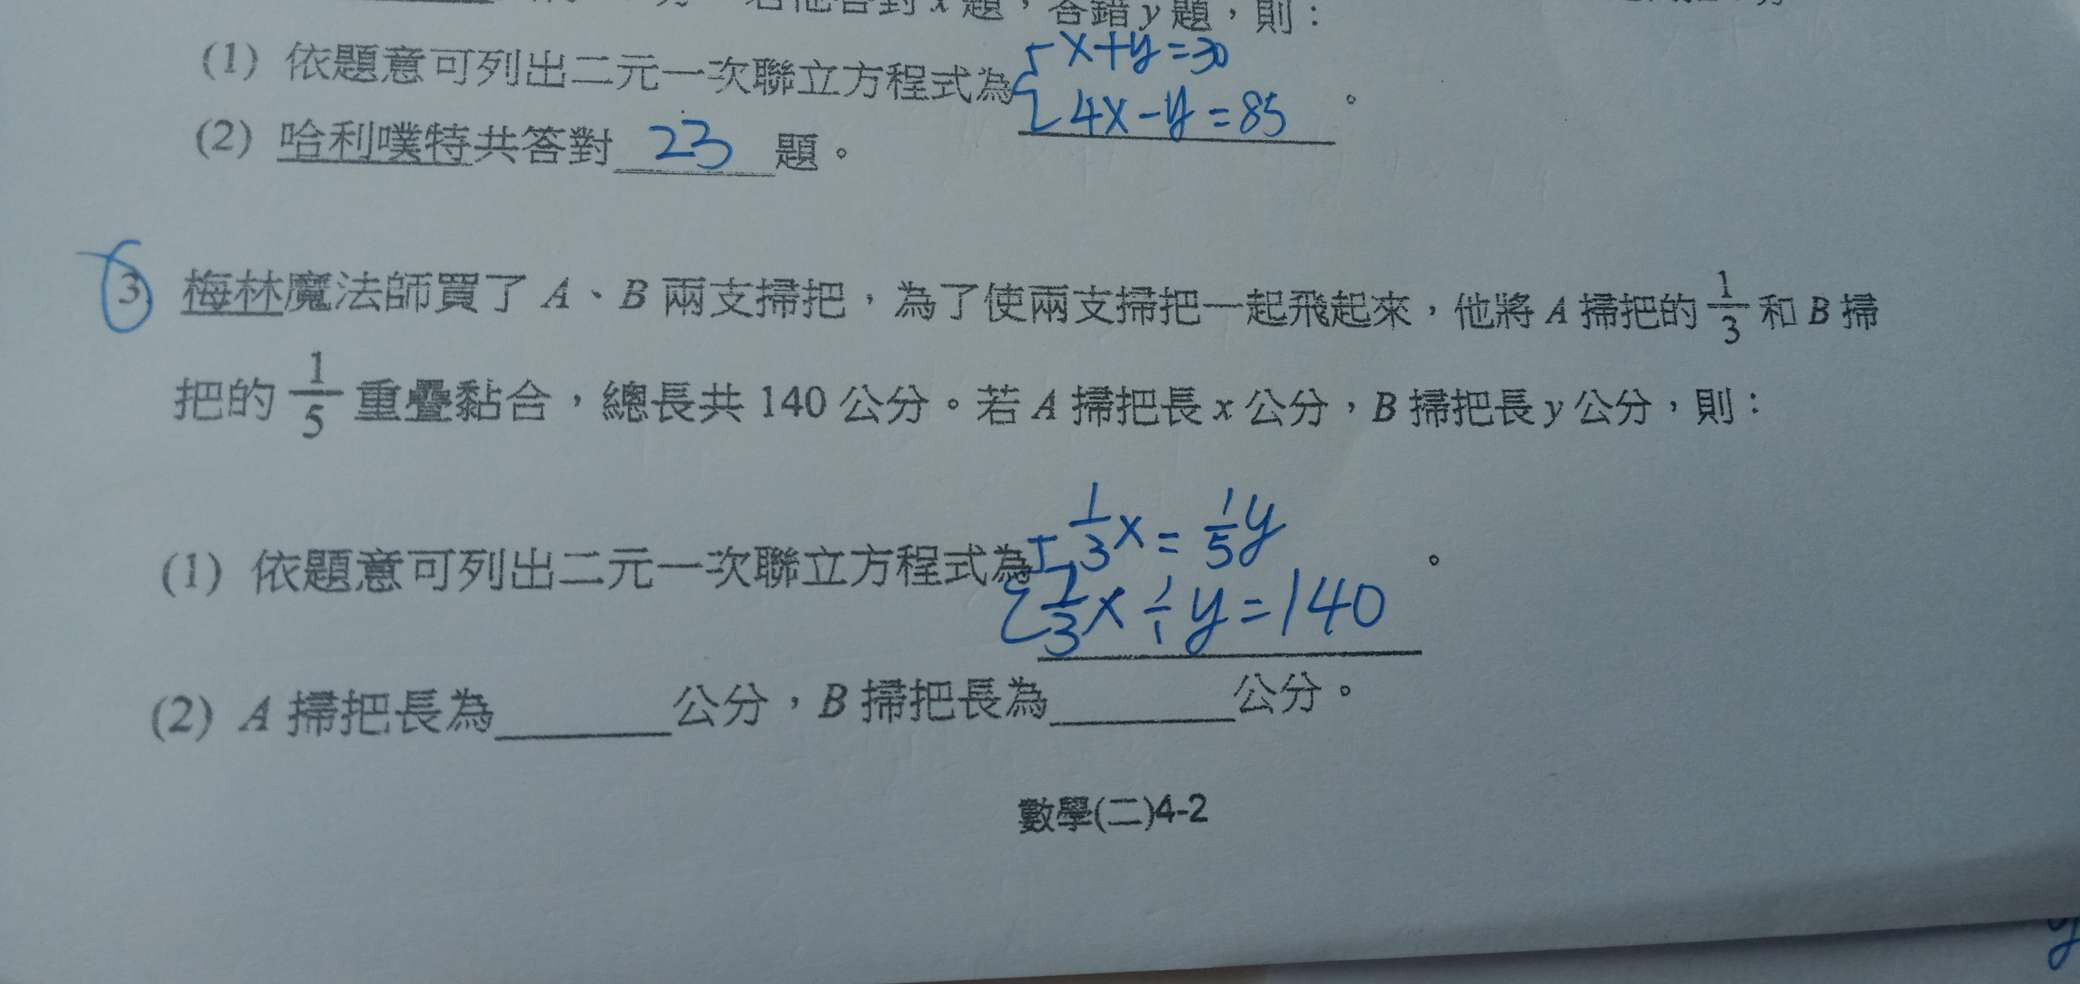 若他答對 x 題，答錯 y 題，則：
(1) 依題意可列出二元一次聯立方程式為 { x+y=30
4x-y=85 。
(2) 哈利噗特共答對 23 題。
3 梅林魔法師買了 A、B 兩支掃把，為了使兩支掃把一起飛起來，他將 A 掃把的 1/3 和 B 掃
把的 1/5 重疊黏合，總長共 140 公分。若 A 掃把長 x 公分，B 掃把長 y 公分，則：
(1) 依題意可列出二元一次聯立方程式為 { 1/3 x = 1/5 y 。
2/3 x + y = 140
(2) A 掃把長為______公分，B 掃把長為______公分。
數學(二)4-2
y